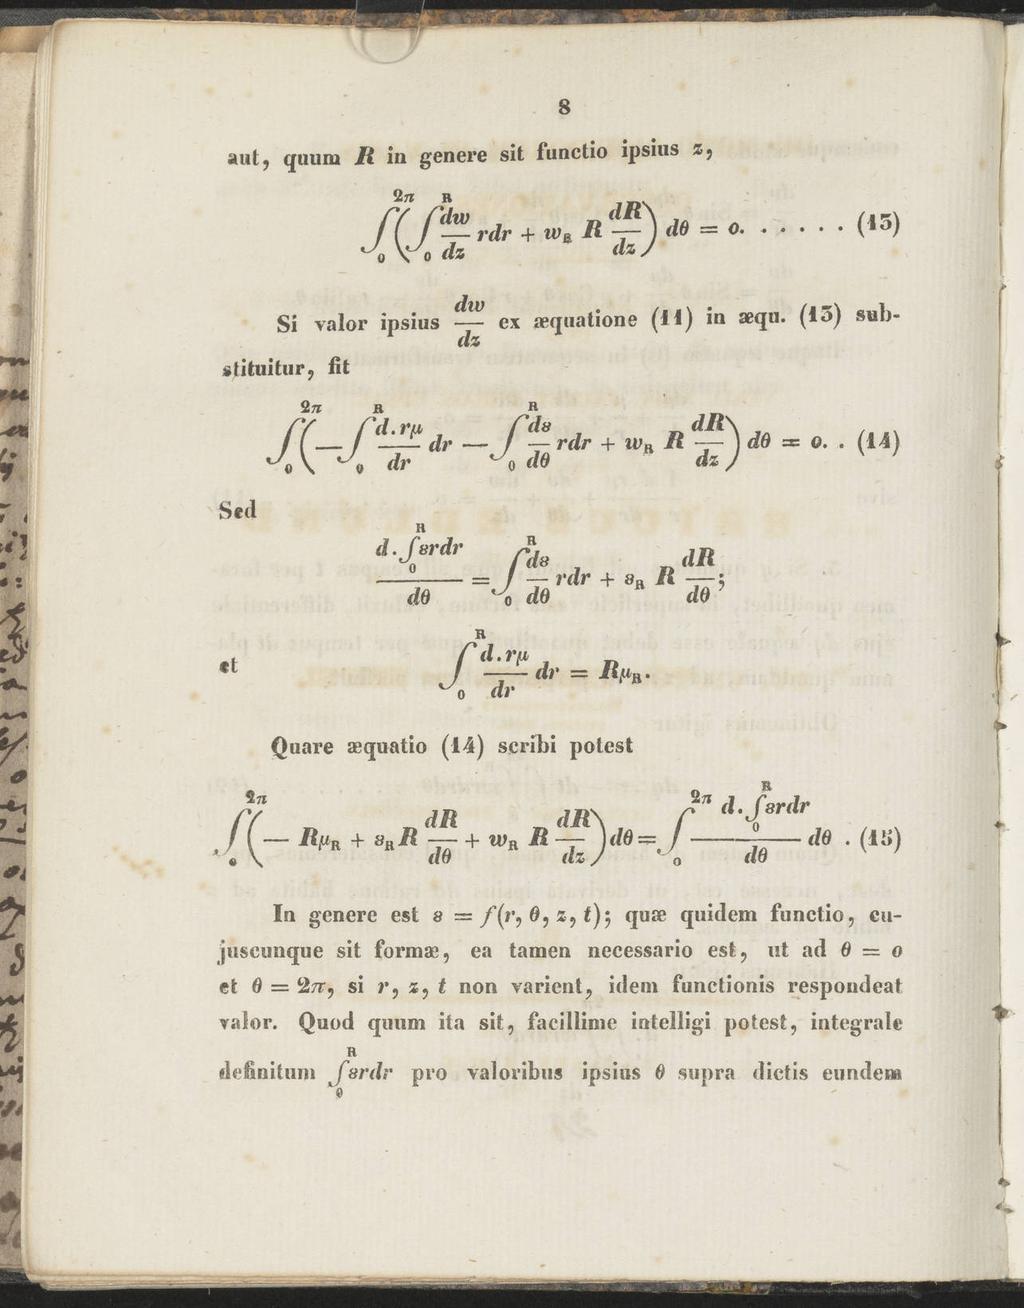 8
aut, quum R in genere sit functio ipsius z,
∫₀^{2π} (∫₀^{R} dw/dz rdr + w_R R dR/dz) dθ = o. . . . . . (13)
Si valor ipsius dw/dz ex æquatione (11) in æqu. (13) sub-
stituitur, fit
∫₀^{2π} (— ∫₀^{R} d.rμ/dr dr — ∫₀^{R} ds/dθ rdr + w_R R dR/dz) dθ = o. . (14)
Sed
d.∫₀^{R} srdr/dθ = ∫₀^{R} ds/dθ rdr + s_R R dR/dθ;
et ∫₀^{R} d.rμ/dr dr = Rμ_R.
Quare æquatio (14) scribi potest
∫₀^{2π} (— Rμ_R + s_R R dR/dθ + w_R R dR/dz) dθ = ∫₀^{2π} d.∫₀^{R} srdr/dθ dθ . (15)
In genere est s = f(r, θ, z, t); quæ quidem functio, cu-
juscunque sit formæ, ea tamen necessario est, ut ad θ = o
et θ = 2π, si r, z, t non varient, idem functionis respondeat
valor. Quod quum ita sit, facillime intelligi potest, integrale
definitum ∫₀^{R} srdr pro valoribus ipsius θ supra dictis eundem